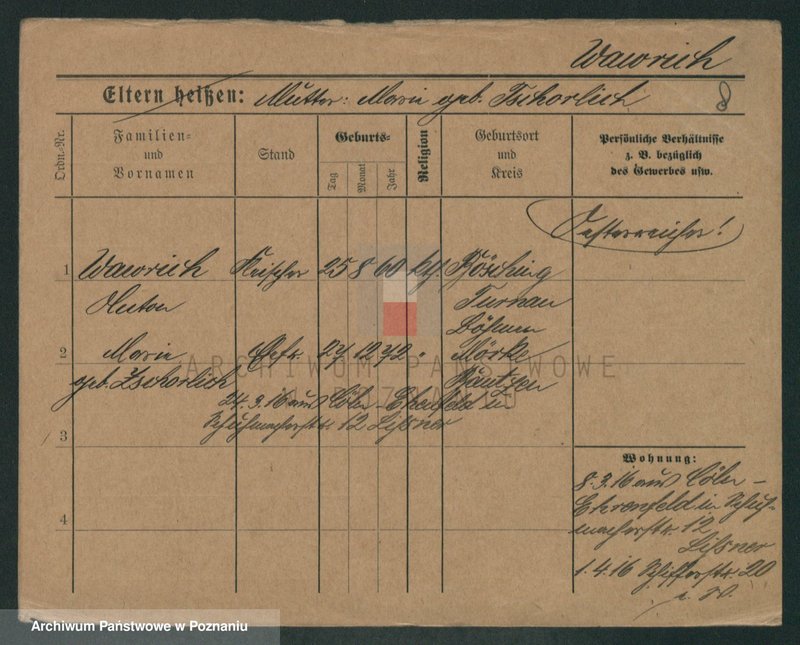 Wawrich
Eltern heißen: Mutter: Marie geb. Tschorlich
8
Ordn.-Nr.
Familien-
und
Vornamen
Stand
Geburts-
Tag
Monat
Jahr
Religion
Geburtsort
und
Kreis
Persönliche Verhältnisse
z. B. bezüglich
des Gewerbes usw.
Oesterreicher!
1 Wawrich 25 8 60 kth.
Anton Turnau
Böhmen
2 Marie Ehefr. 27 12 72 "
geb. Zschorlich Bautzen
24.3.16 aus Cöln-Ehrenfeld in
Schuhmacherstr. 12 Lißner
3
4
Wohnung:
8.3.16 aus Cöln-
Ehrenfeld in Schuh-
macherstr. 12
Lißner
1.4.16 Schifferstr. 20
ARCHIWUM PAŃSTWOWE
W POZNANIU
Archiwum Państwowe w Poznaniu